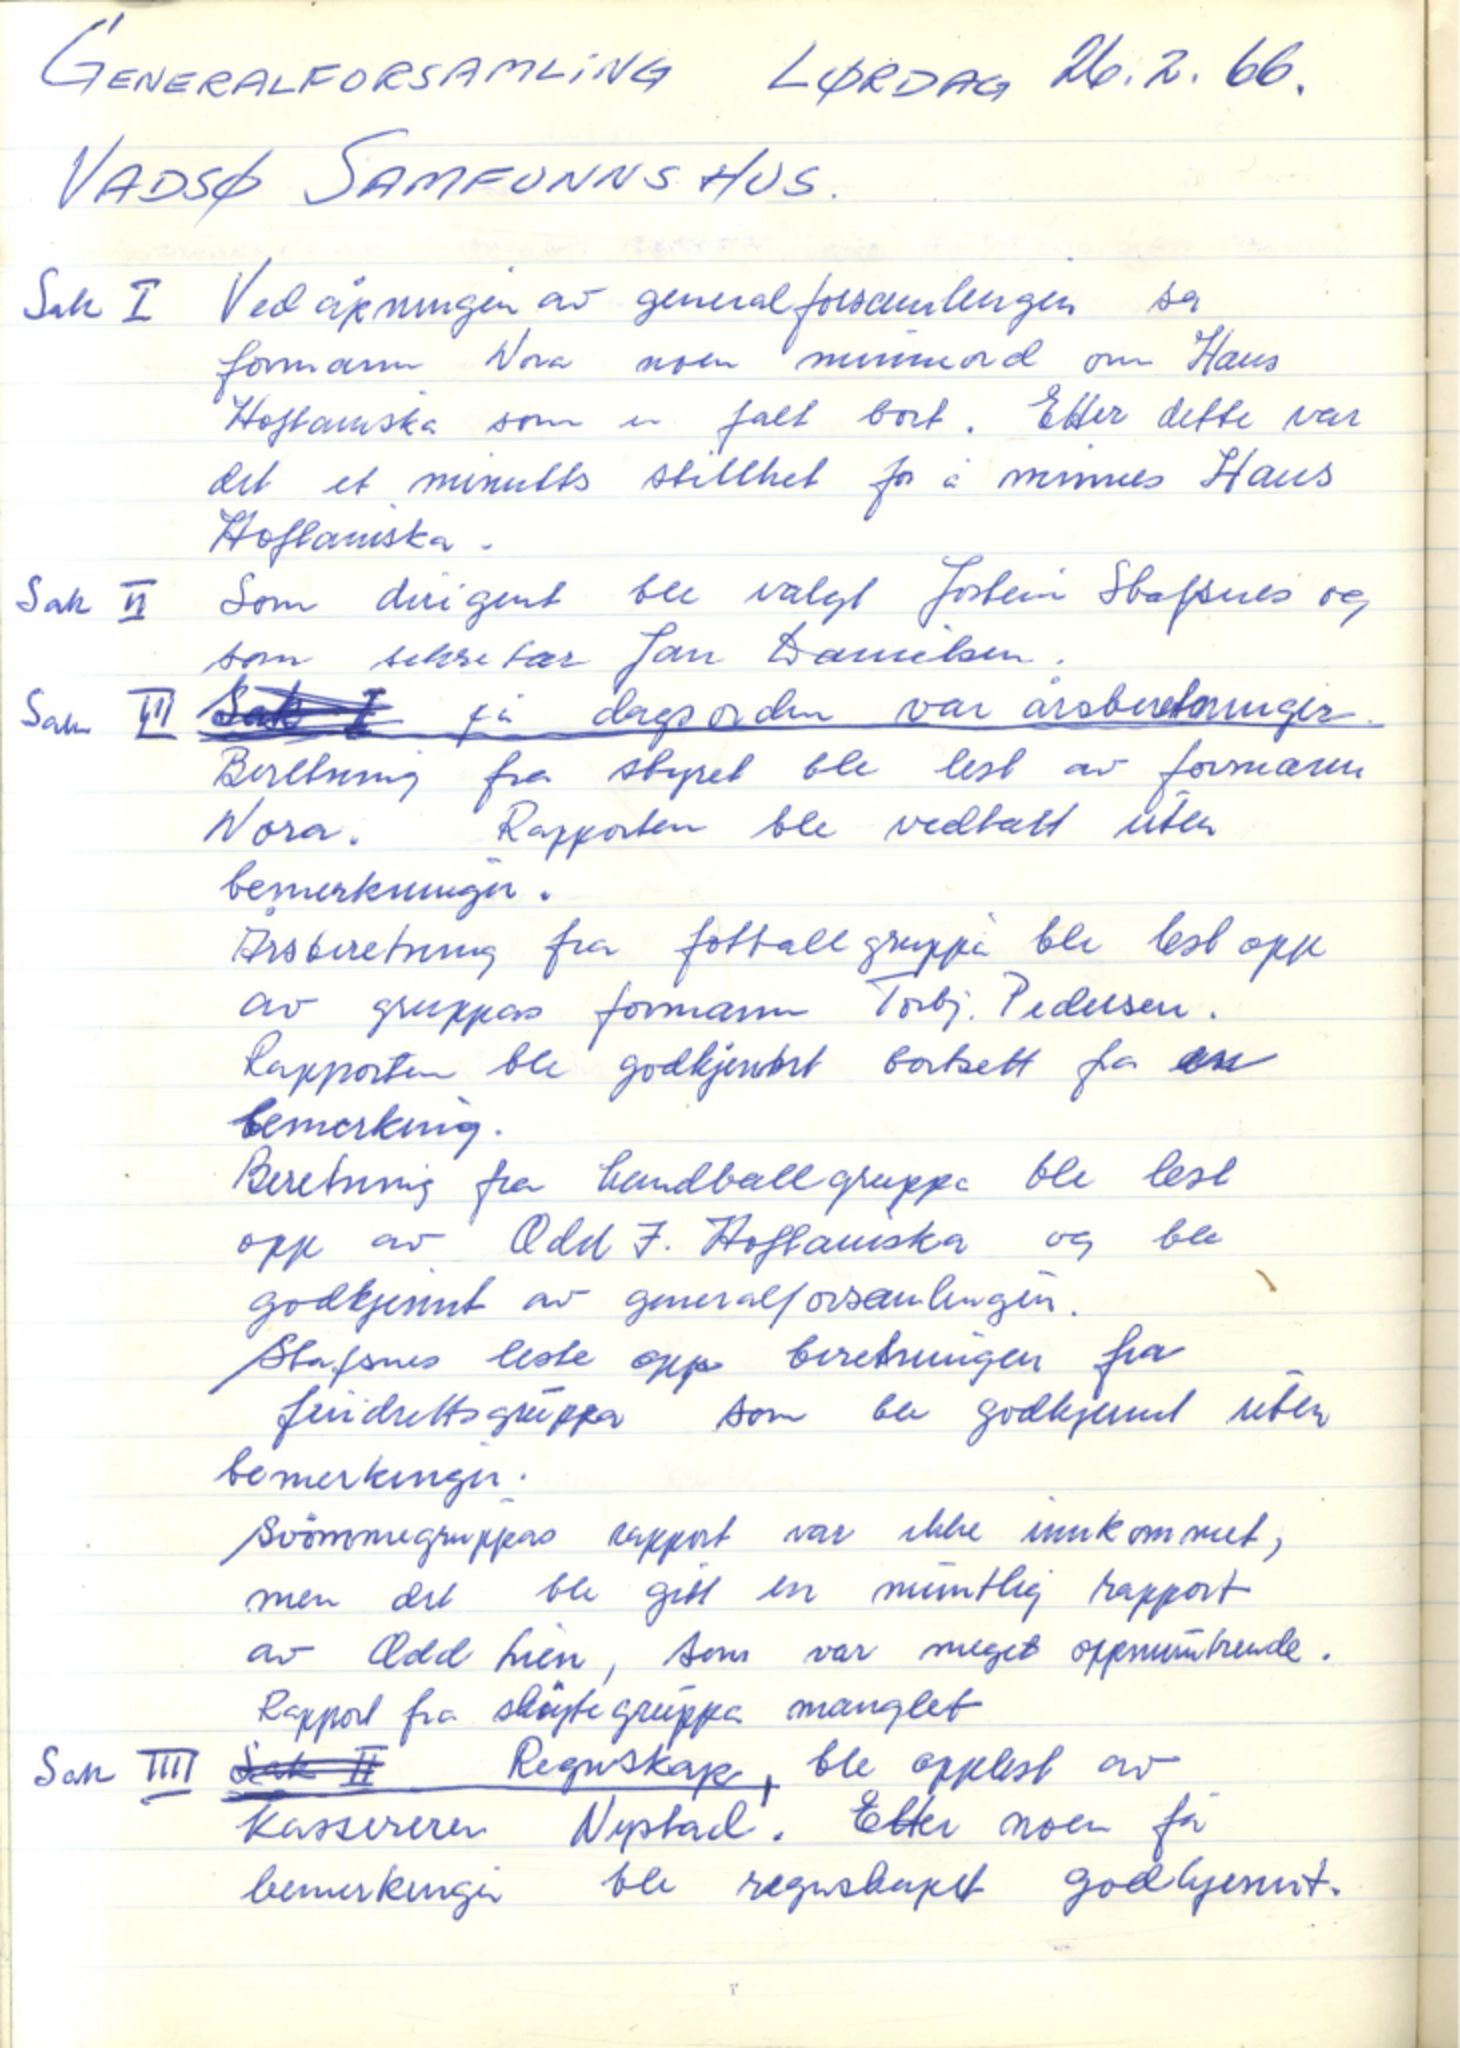 GENERALFORSAMLING LØRDAG 26.2.66.
VADSØ SAMFUNNSHUS.
Sak I Ved åpningen av generalforsamlingen sa
formann Wora noen minneord om Hans
Hoftaniska som er falt bort. Etter dette var
det et minutts stillhet for å minnes Hans
Hoftaniska.
Sak II Som dirigent ble valgt Jostein Stafsnes og
som sekretær Jan Danielsen.
Sak III Sak I på dagsorden var årsberetninger.
Beretning fra styret ble lest av formann
Wora. Rapporten ble vedtatt uten
bemerkninger.
Årsberetning fra fotballgruppa ble lest opp
av gruppas formann Torbj. Pedersen.
Rapporten ble godkjent bortsett fra en
bemerking.
Beretning fra handballgruppa ble lest
opp av Odd J. Hoftaniska og ble
godkjennt av generalforsamlingen.
Stafsnes leste opp beretningen fra
friidrettsgruppa som ble godkjennt uten
bemerkinger.
Svömmegruppas rapport var ikke innkommet,
men det ble gitt en muntlig rapport
av Odd Lien, som var meget oppmuntrende.
Rapport fra skøytegruppa manglet
Sak IIII Sak II Regnskap, ble opplest av
kassereren Nystad. Etter noen få
bemerkinger ble regnskapet godkjennt.